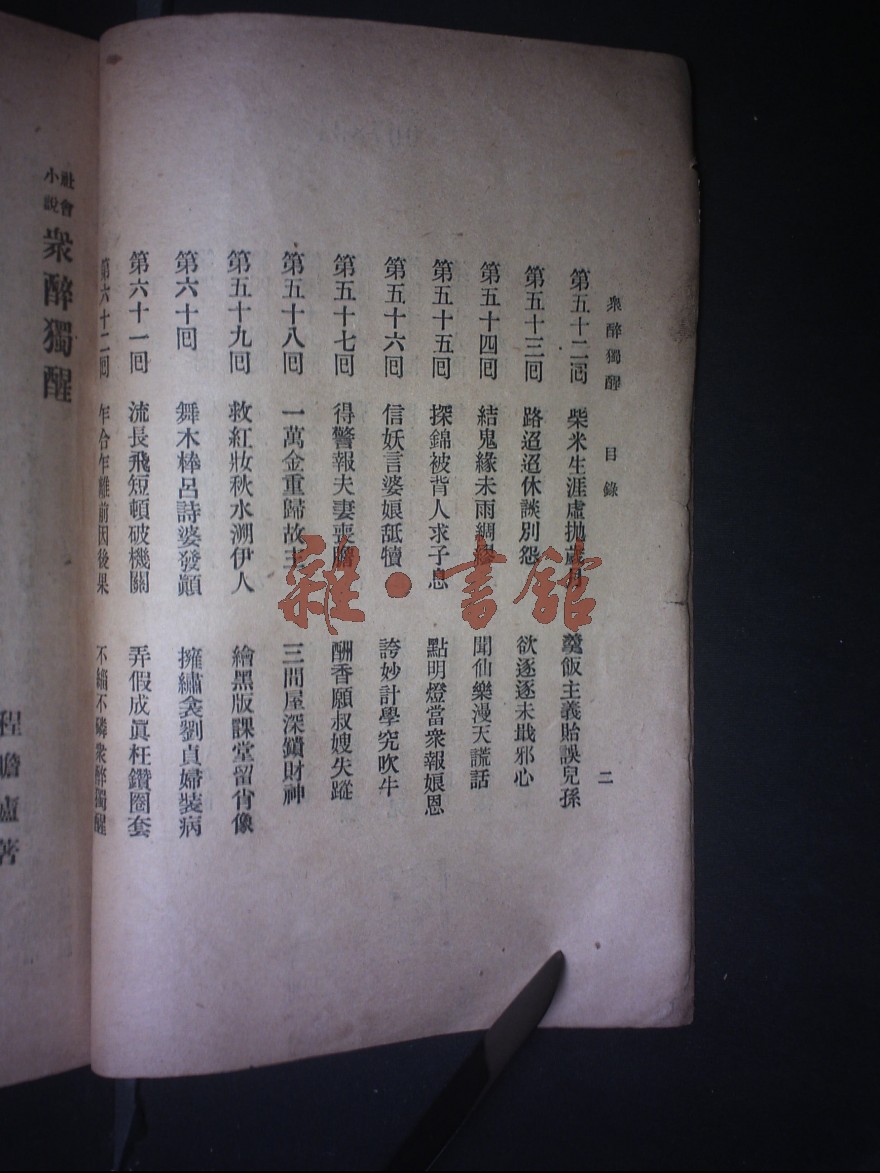 衆醉獨醒　目錄　二
第五十二回　柴米生涯虛拋歲月　羹飯主義貽誤兒孫
第五十三回　路迢迢休談別怨　欲逐逐未戢邪心
第五十四回　結鬼緣未雨綢繆　聞仙樂漫天謊話
第五十五回　探錦被背人求子息　點明燈當衆報娘恩
第五十六回　信妖言婆娘舐犢　誇妙計學究吹牛
第五十七回　得警報夫妻喪膽　酬香願叔嫂失蹤
第五十八回　一萬金重歸故主　三間屋深鎖財神
第五十九回　救紅妝秋水溯伊人　繪黑版課堂留肖像
第六十回　舞木棒呂詩婆發顚　擁繡衾劉貞婦裝病
第六十一回　流長飛短頓破機關　弄假成眞枉鑽圈套
第六十二回　乍合乍離前因後果　不緇不磷衆醉獨醒
社會小說　衆醉獨醒
程瞻廬著
雜·書館